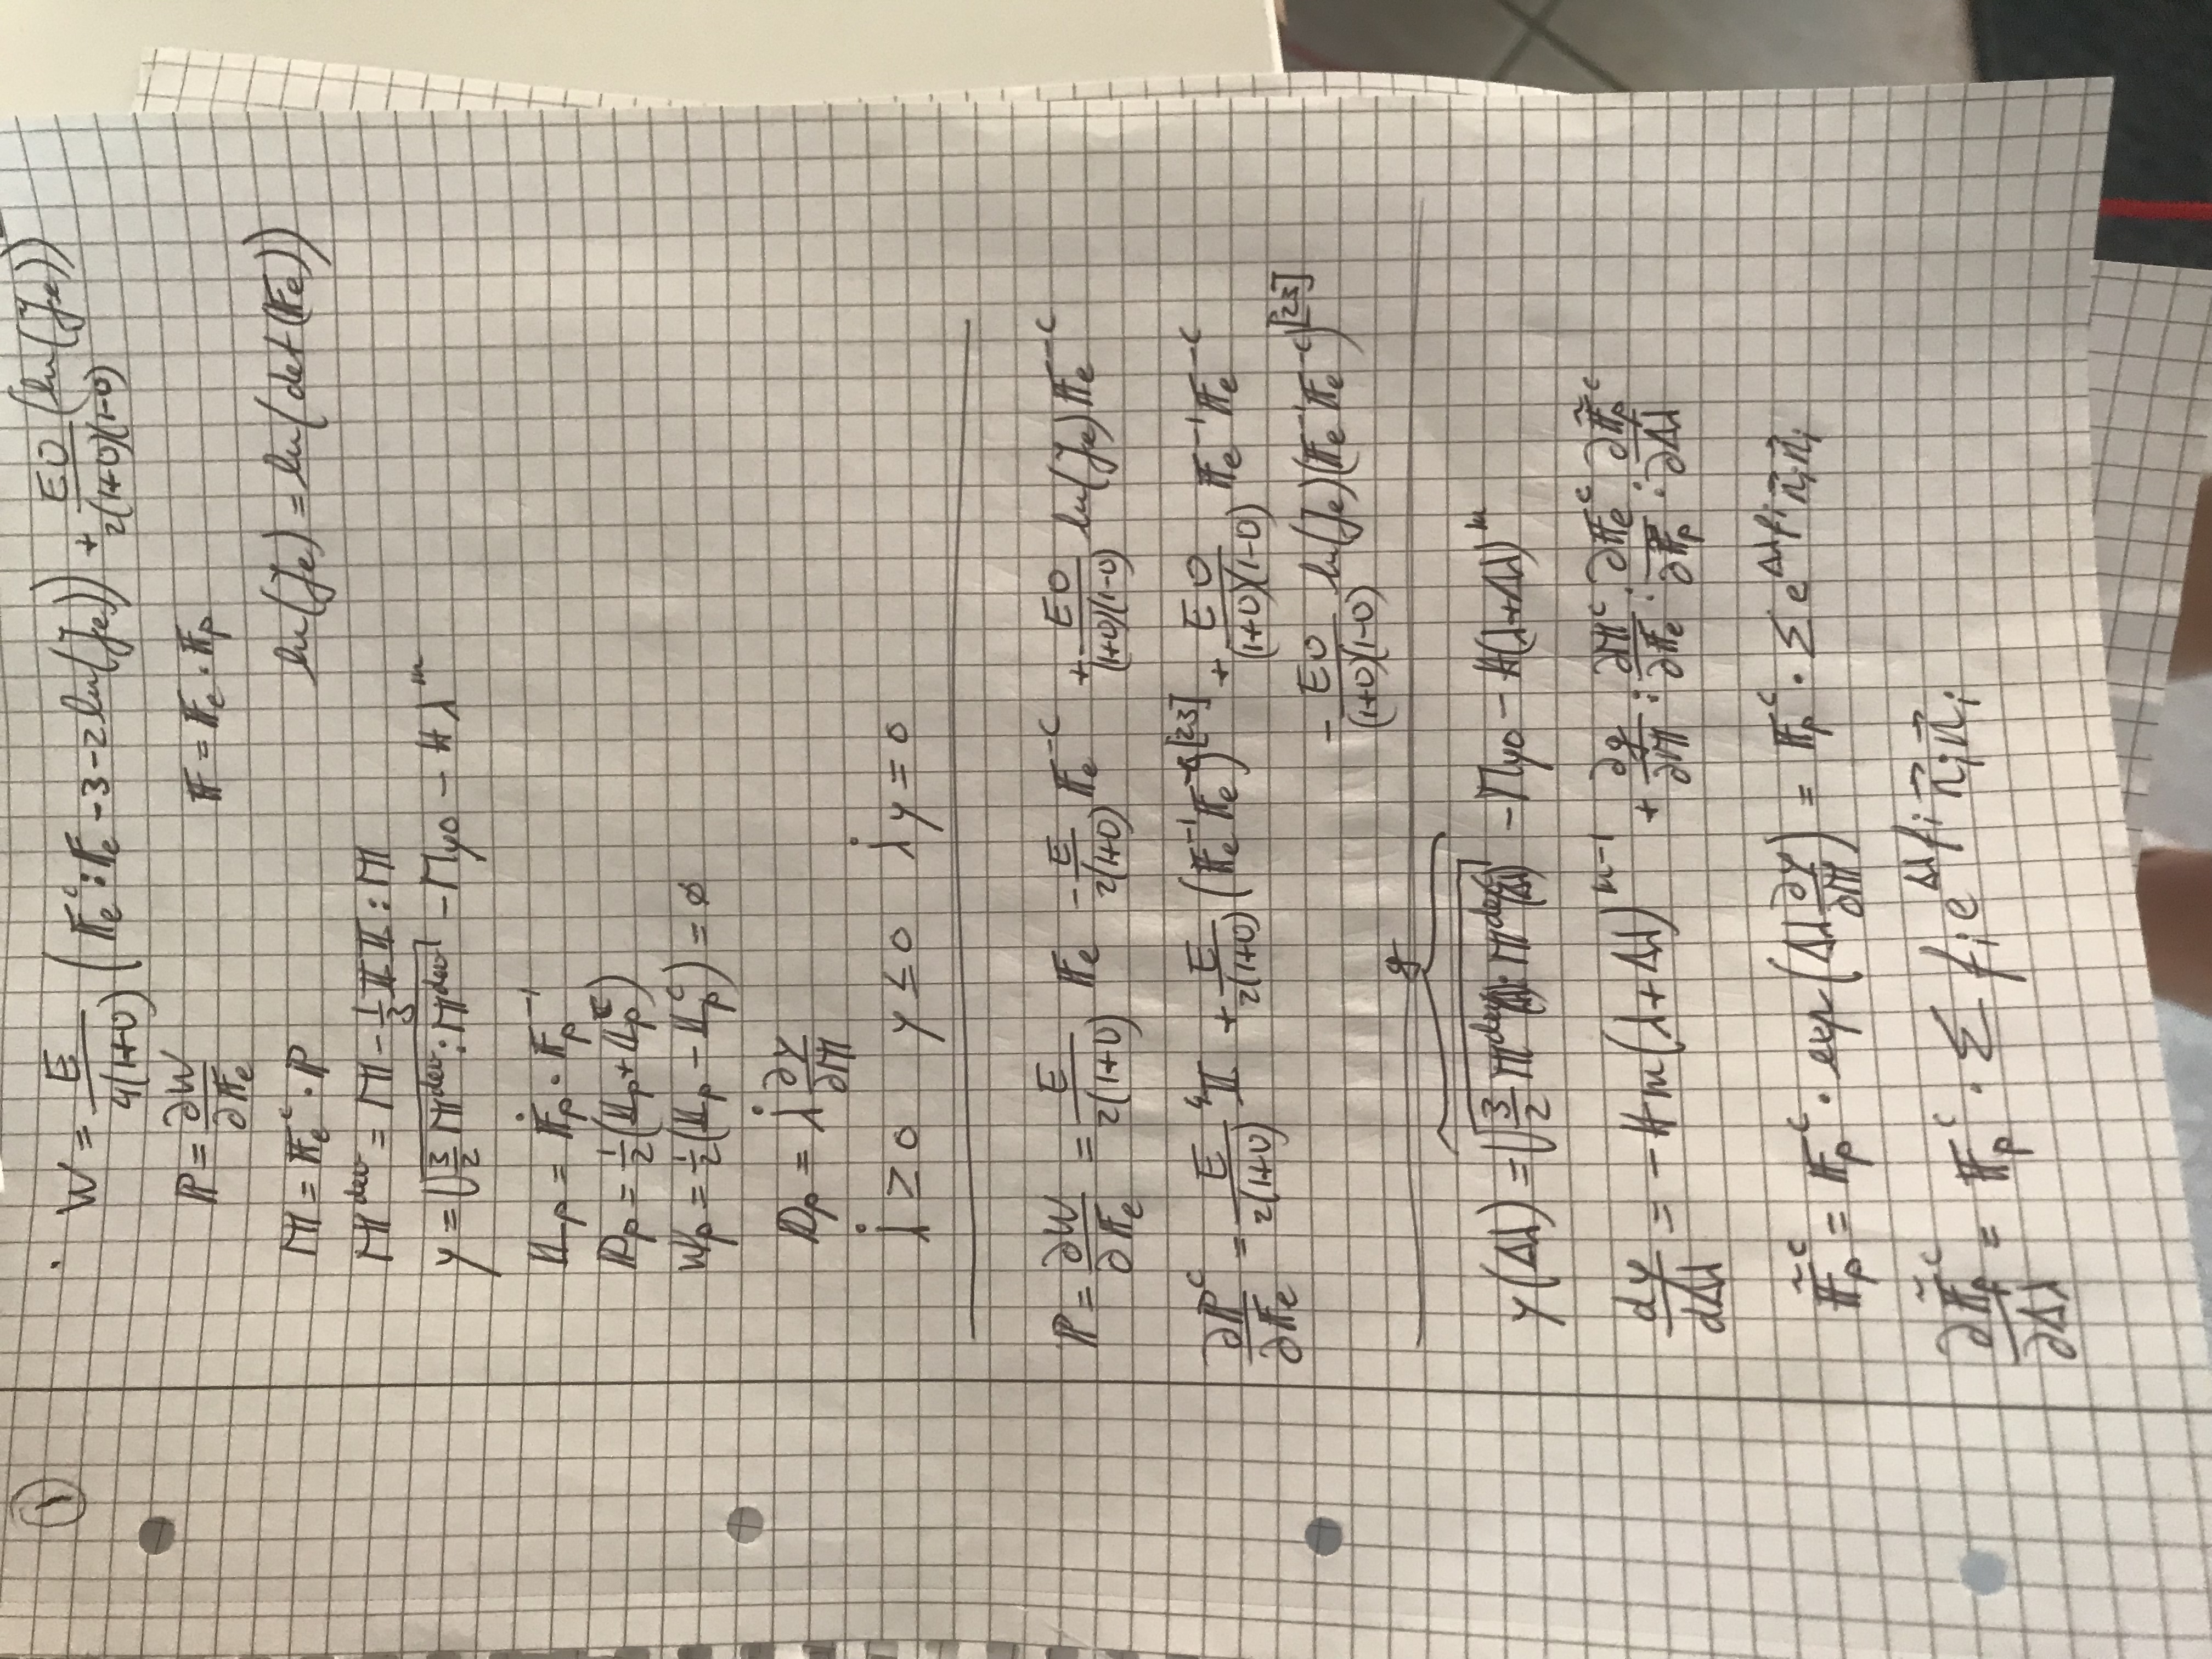 ①
W = E/(4(1+υ)) (𝔽ₑᶜ:𝔽ₑ - 3 - 2 ln(Jₑ)) + Eυ/(2(1+υ)(1-υ)) (ln(Jₑ))²
ℙ = ∂W/∂𝔽ₑ    𝔽 = 𝔽ₑ · 𝔽ₚ
𝕄 = 𝔽ₑᶜ · ℙ    ln(Jₑ) = ln(det(𝔽ₑ))
𝕄ᵈᵉᵛ = 𝕄 - 1/3 𝕀 𝕀 : 𝕄
y = √(3/2 𝕄ᵈᵉᵛ : 𝕄ᵈᵉᵛ) - M_y0 - H λᵐ
𝕃ₚ = 𝔽̇ₚ · 𝔽ₚ⁻¹
𝔻ₚ = 1/2 (𝕃ₚ + 𝕃ₚᶜ)
𝕎ₚ = 1/2 (𝕃ₚ - 𝕃ₚᶜ) = ∅
𝔻ₚ = λ̇ ∂y/∂𝕄
λ̇ ≥ 0    y ≤ 0    λ̇ y = 0
ℙ = ∂W/∂𝔽ₑ = E/(2(1+υ)) 𝔽ₑ - E/(2(1+υ)) 𝔽ₑ⁻ᶜ + Eυ/((1+υ)(1-υ)) ln(Jₑ) 𝔽ₑ⁻ᶜ
∂ℙᶜ/∂𝔽ₑ = E/(2(1+υ)) ⁴𝕀 + E/(2(1+υ)) (𝔽ₑ⁻¹ 𝔽ₑ⁻ᶜ)^[23] + Eυ/((1+υ)(1-υ)) 𝔽ₑ⁻¹ 𝔽ₑ⁻ᶜ
- Eυ/((1+υ)(1-υ)) ln(Jₑ) (𝔽ₑ⁻¹ 𝔽ₑ⁻ᶜ)^[23]
g
y(Δλ) = √(3/2 𝕄ᵈᵉᵛ(Δλ) : 𝕄ᵈᵉᵛ(Δλ)) - M_y0 - H(λ+Δλ)ᵐ
dy/dΔλ = - H m (λ+Δλ)ᵐ⁻¹ + ∂g/∂𝕄 : ∂𝕄ᶜ/∂𝔽ₑ : ∂𝔽ₑᶜ/∂𝔽̃ₚ : ∂𝔽̃ₚᶜ/∂Δλ
𝔽̃ₚᶜ = 𝔽ₚᶜ · exp(Δλ ∂y/∂𝕄) = 𝔽ₚᶜ · Σ e^(Δλ fᵢ) n⃗ᵢ n⃗ᵢ
∂𝔽̃ₚᶜ/∂Δλ = 𝔽ₚᶜ · Σ fᵢ e^(Δλ fᵢ) n⃗ᵢ n⃗ᵢ